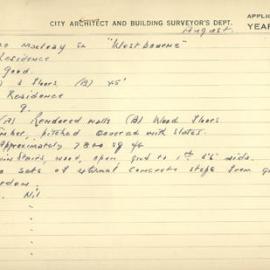 CITY ARCHITECT AND BUILDING SURVEYOR'S DEPT.
APPLIC
YEAR
August
"Westbourne"
Residence
Good
Floors (B) 45'
Residence
9.
(A) Rendered walls (B) Wood Floors
pitched covered with slates
Approximately 7800 sq ft
stairs, wood, open grd to 1st 5'6" wide.
sets of external concrete steps from
Nil